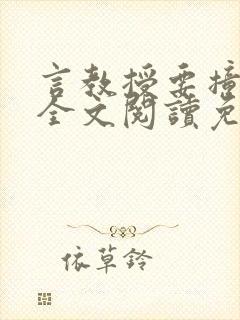 言教授要撞
全文閱讀免
依草鈴